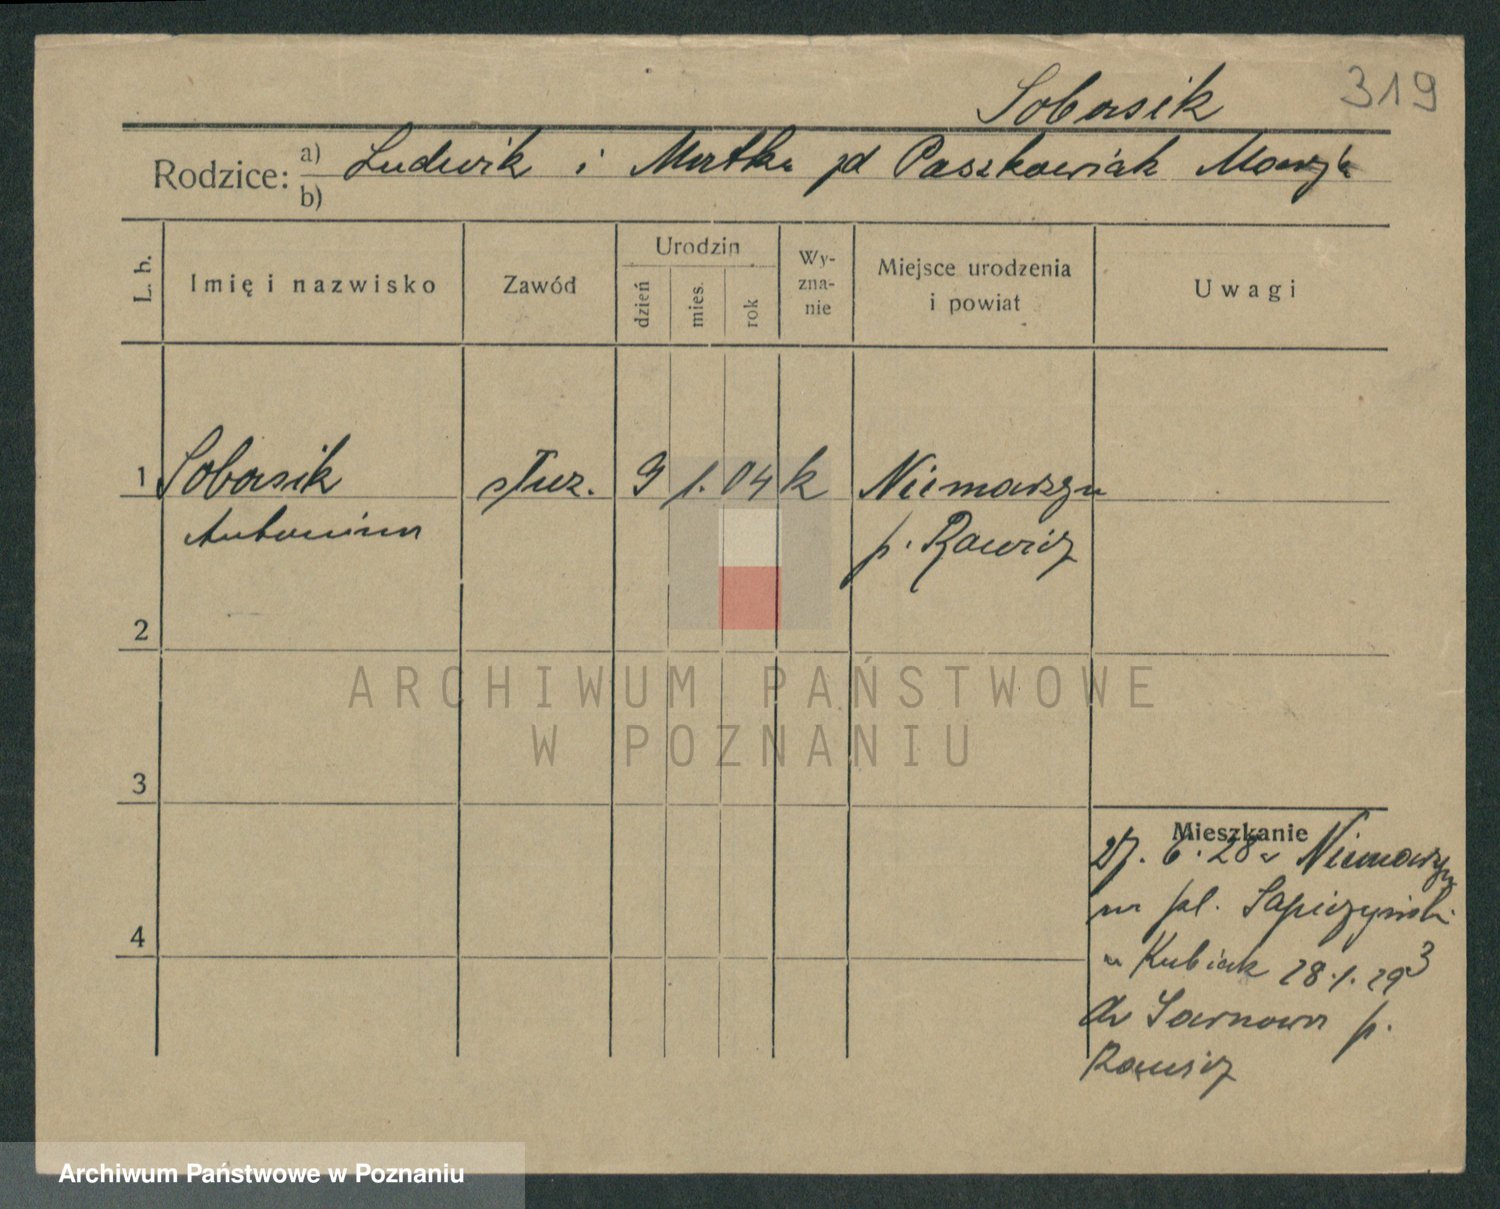 319
Sobasik
Rodzice: a) Ludwik i Matka zd Paszkowiak Marja
b)
L. b. Imię i nazwisko Zawód Urodzin dzień mies. rok Wy-zna-nie Miejsce urodzenia i powiat Uwagi
1 Sobasik służ. 9 1. 04 k Niemarzyn
Antonina p. Rawicz
2
3
4
Mieszkanie
27. 6. 28 z Niemarzyn
na pl. Sapieżyński
u Kubiak 28.1.29
do Sarnowa p.
Rawicz
ARCHIWUM PAŃSTWOWE
W POZNANIU
Archiwum Państwowe w Poznaniu